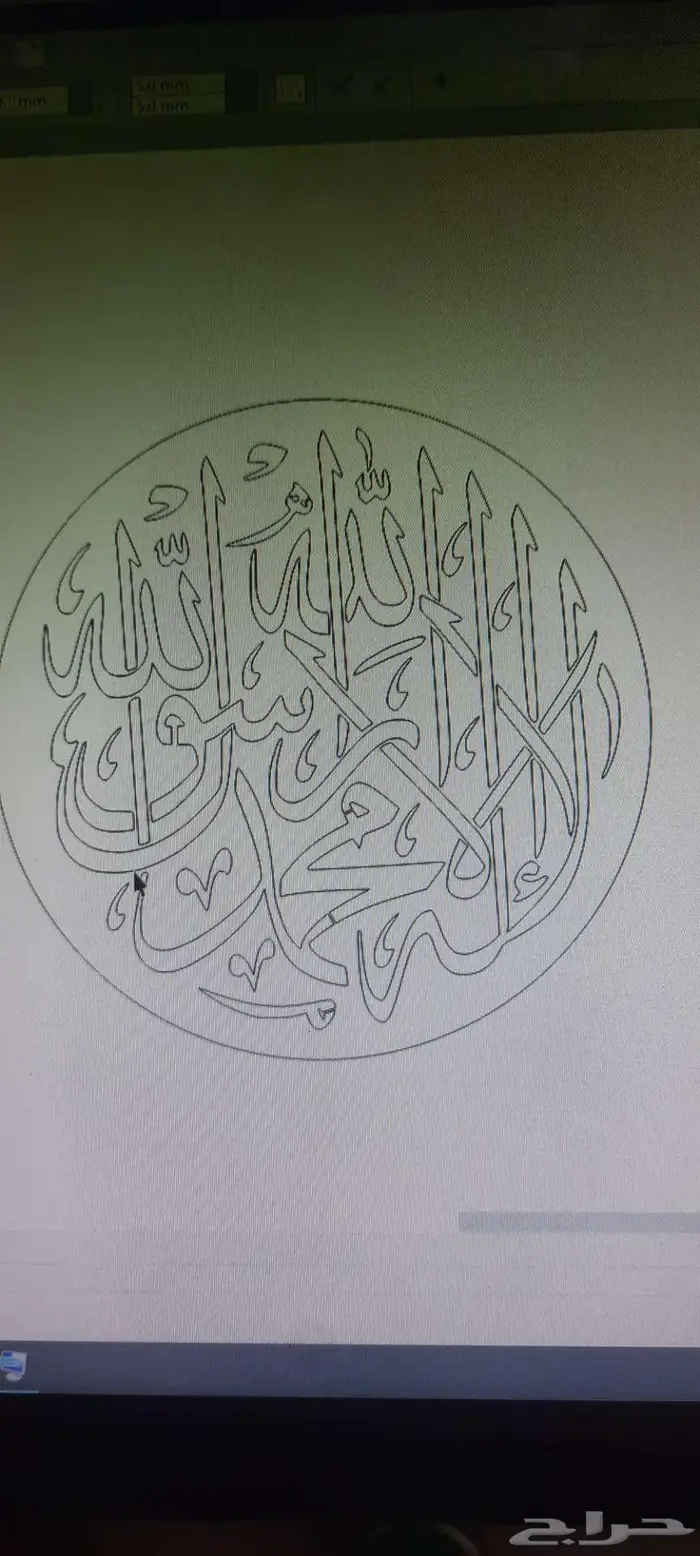 5.0 mm
5.0 mm
mm
لا إله إلا الله محمد رسول الله
حراج